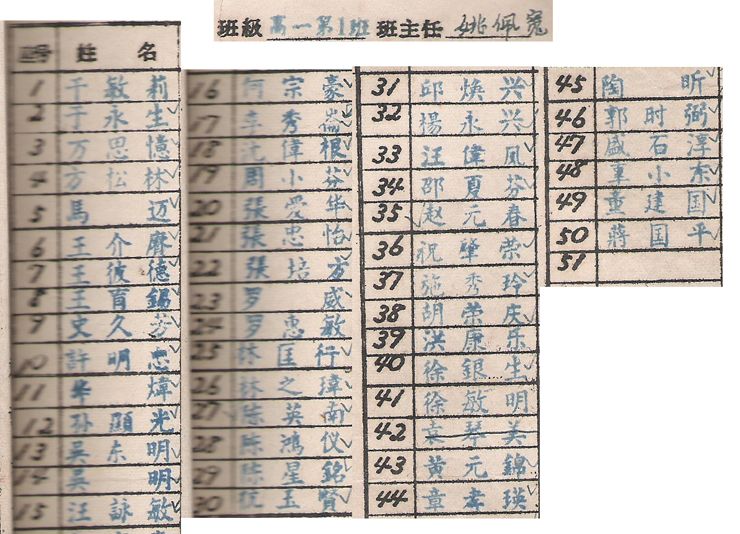 班級 高一第1班 班主任 姚佩寬
姓 名
1 于敏莉
2 于永生
3 万思憶
4 方松林
5 馬迈
6 王介麿
7 王彼德
8 王賓錫
9 史久芬
10 許明忠
11 华煒
12 孙顯光
13 吴东明
14 吴明
15 汪詠敏
16 何宗豪
17 秀崙
18 偉根
19 周小芬
20 張愛华
21 張忠怡
22 張培方
23 罗威
24 罗惠敏
25 林匡行
26 林之瑋
27 陈英南
28 陈鴻仪
29 陈星銘
30 倪玉賢
31 邱煥兴
32 揚永兴
33 汪偉凤
34 邵夏芬
35 赵元春
36 祝肇荣
37 施秀玲
38 胡荣庆
39 洪康乐
40 徐銀生
41 徐敏明
42 袁琴美
43 黄元錦
44 章孝瑛
45 陶昕
46 郭时弼
47 盛石淳
48 董小东
49 董建国
50 蔣国平
51